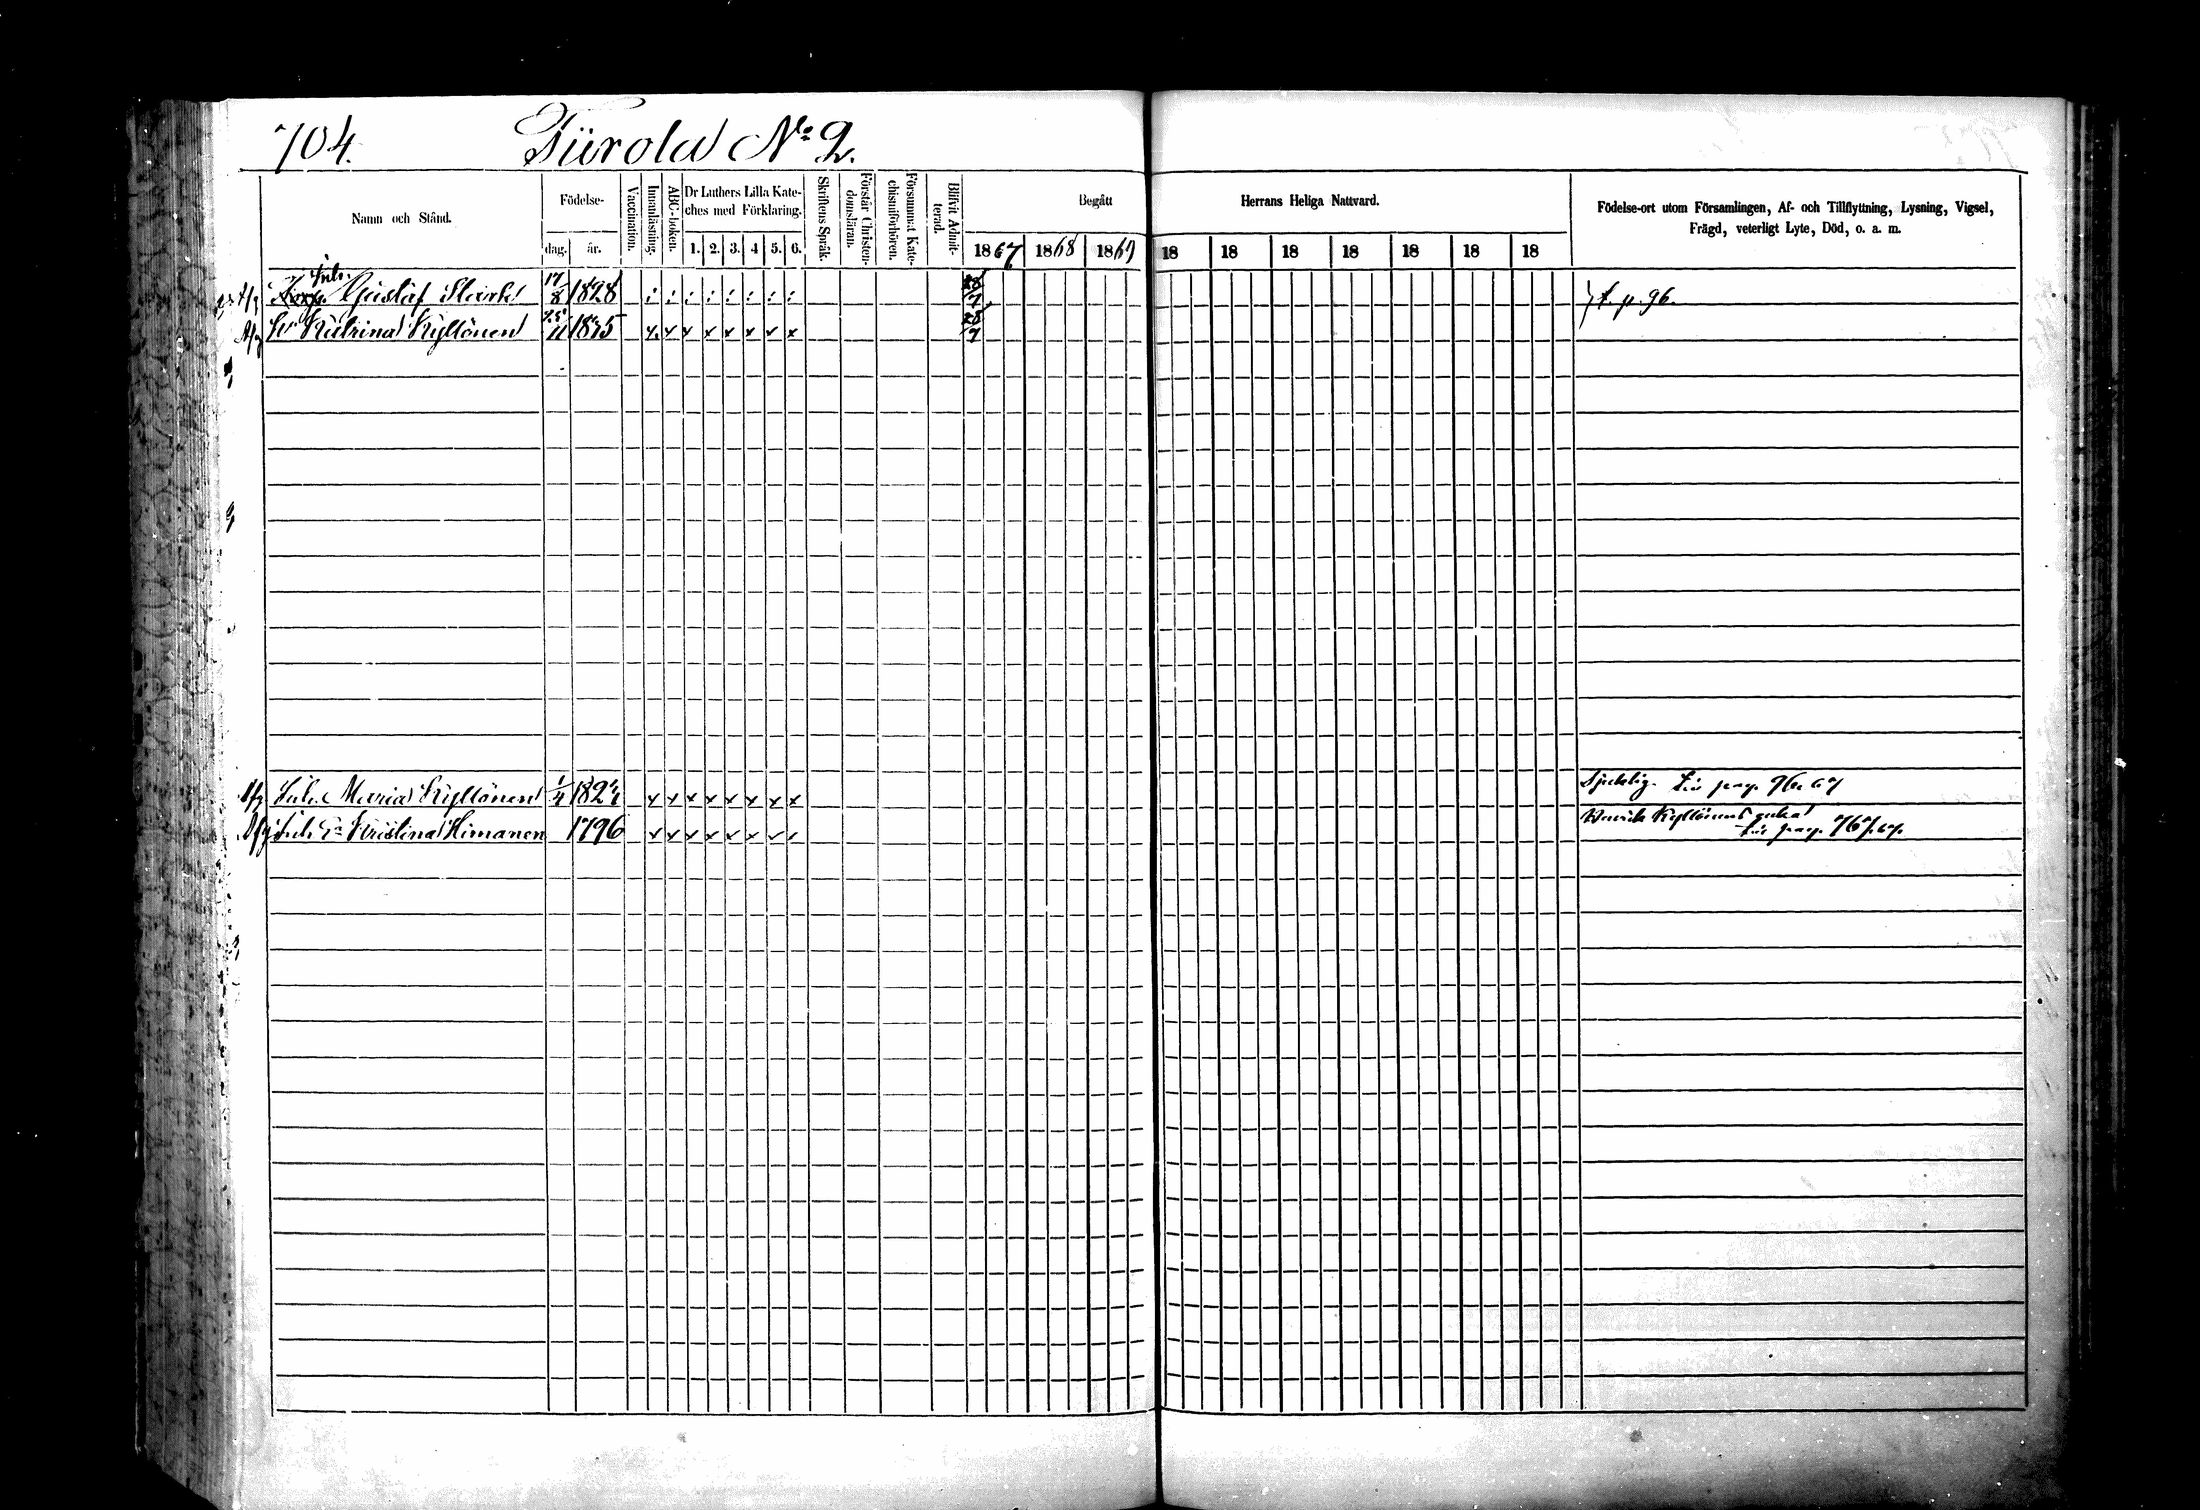 704. Tiirola No 2.
Namn och Stånd.
Födelse-
dag. år.
Vaccination.
Innanläsning.
ABC-boken.
Dr Luthers Lilla Kate-
ches med Förklaring.
1. 2. 3. 4 5. 6.
Skriftens Språk.
Förstår Christen-
domsläran.
Försummat Kate-
chismiförhören.
Blifvit Admit-
terad.
Begått Herrans Heliga Nattvard.
1867 1868 1869 18 18 18 18 18 18 18
Födelse-ort utom Församlingen, Af- och Tillflyttning, Lysning, Vigsel,
Frägd, veterligt Lyte, Död, o. a. m.
Inh.
Gustaf Stark 17/8 1828 28/7 f. p. 96.
Hu Katrina Kyllönen 25/11 1835 28/7
Inh. Maria Kyllönen 1/4 1824 Sjuklig. pag. 76
Inh. Ea Kristina Himanen 1796 Henrik Kyllönens enka
pag. 767.